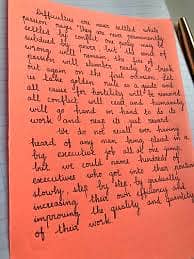 Difficulties are never settled while
passion rages. They are never permanently
settled by conflict. One party may be
subdued by power, but if the
wrong will remain, the fire of
passion will slumber ready to break
out again on the first occasion. Let
us take golden rule as a guide and
all cause for hostility will be removed
all conflict will cease and humanity
will go hand in hand to do its
work and reap its just reward.
We do not recall ever having
heard of any man being placed in a
big executive job all at one jump,
but we could name hundreds of
executives who got into their position
slowly, step by step, by gradually
increasing their own efficiency and
improving the quality and quantity
of their work.